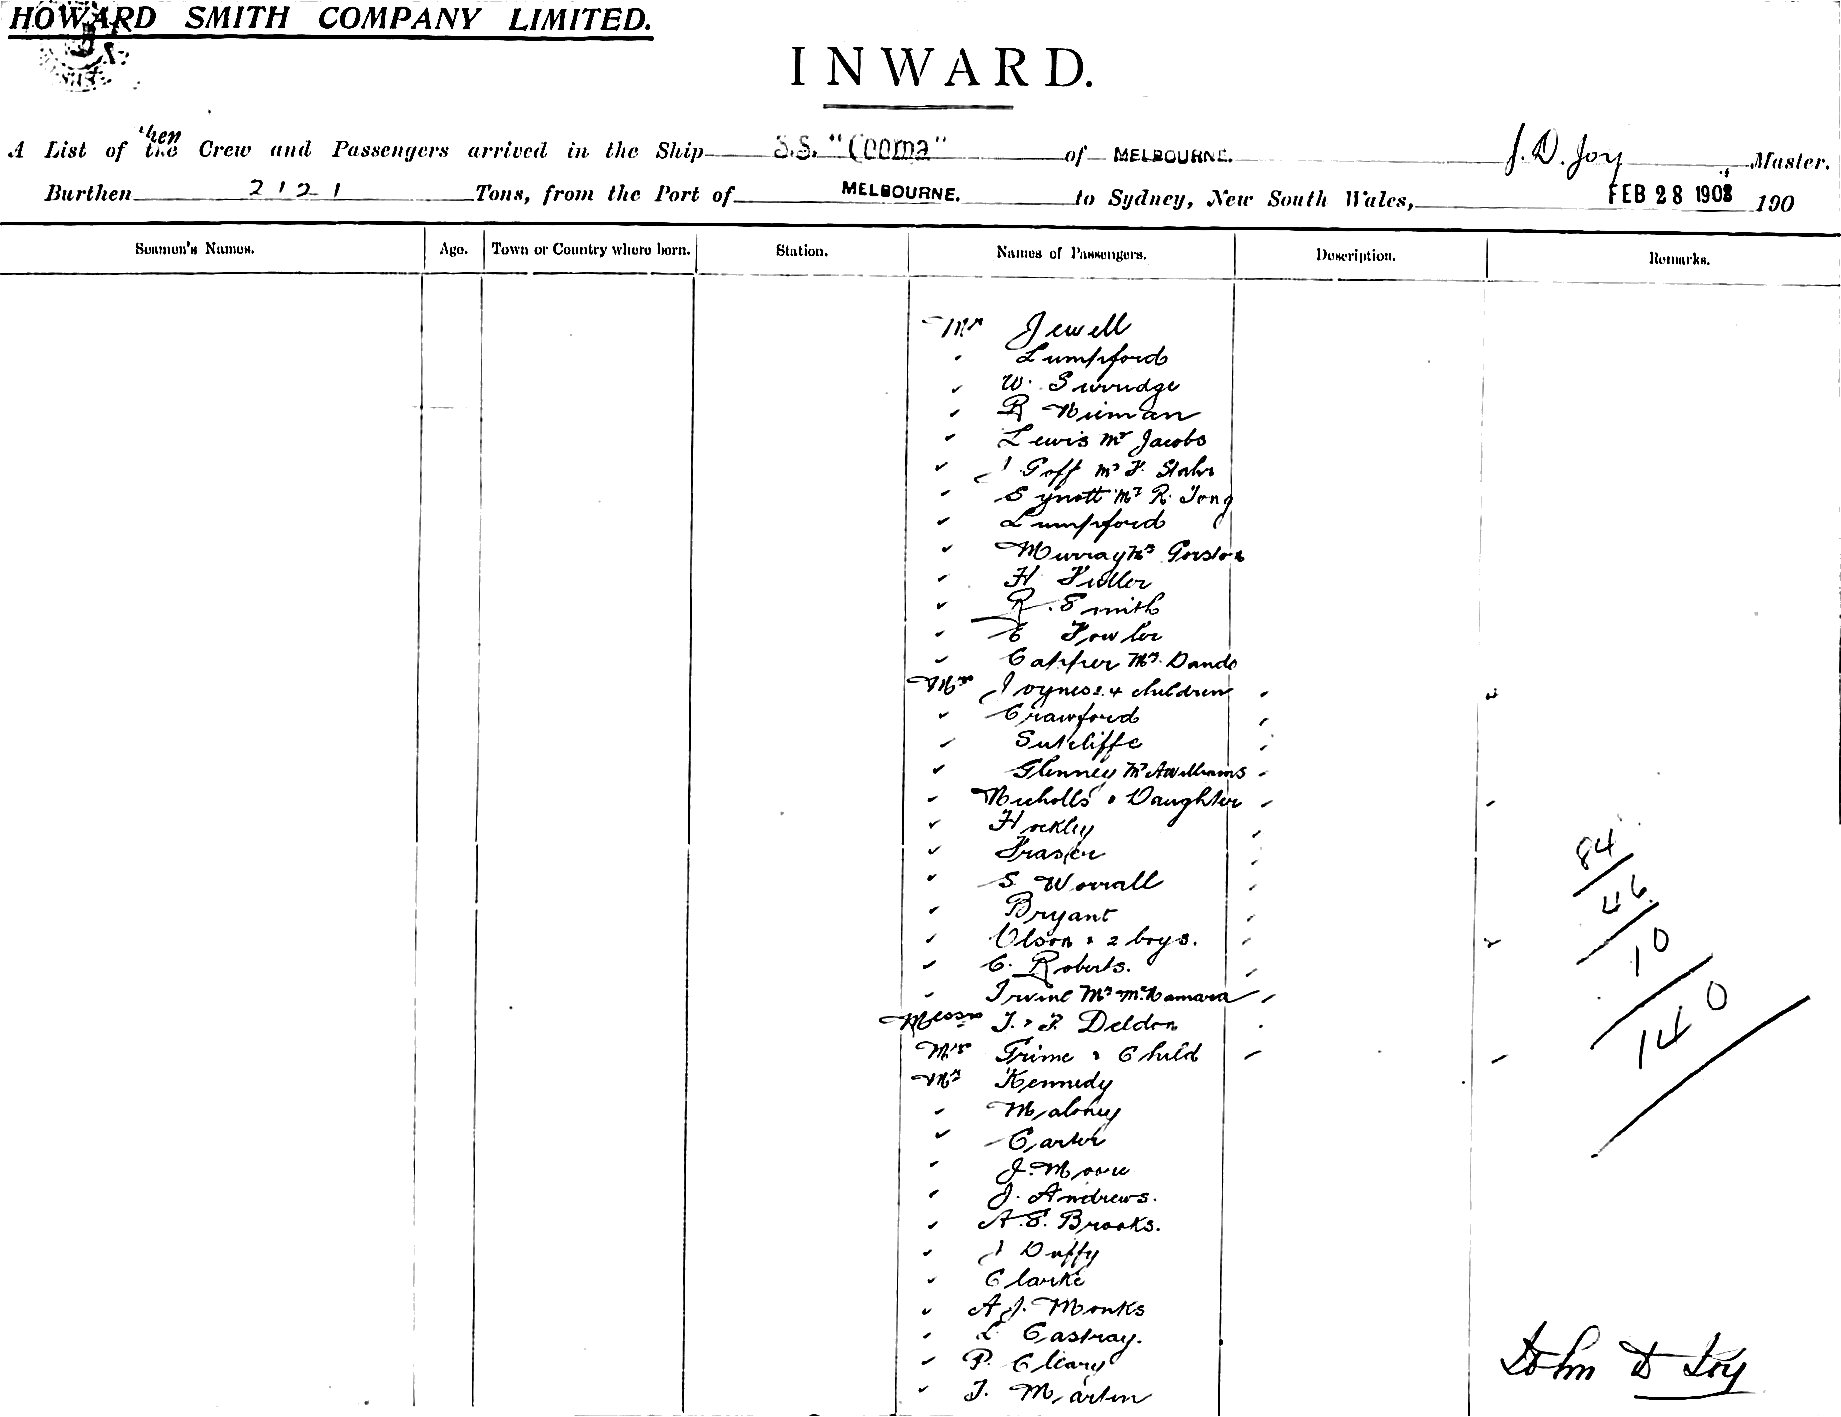 HOWARD SMITH COMPANY LIMITED.
INWARD.
A List of the Crew and Passengers arrived in the Ship S.S. "Cooma" of MELBOURNE. J. D. Joy Master.
Burthen 2121 Tons, from the Port of MELBOURNE. to Sydney, New South Wales, FEB 28 1908 190
Seamen's Names. Age. Town or Country where born. Station. Names of Passengers. Description. Remarks.
Mr Jewell
" Lumpford
" W. Surridge
" R Nieman
" Lewis Mr Jacobs
" J Goff Mr F.
" Synott Mr R. Tong
" Lumpford
" Murray Mr
" H Fidler
" R. Smith
" E Fowler
" Capper Mr. Dando
Mrs Joynes & 4 children " 4
" Crawford "
" Sutcliffe "
" Glenney Mr A Williams "
" Nicholls & Daughter " 1
" Hockley "
" Fraser "
" S Worrall "
" Bryant "
" Olson & 2 boys. " 2
" C. Roberts. "
" Irvine Mr McNamara "
Messrs T. & P. Deldon
Mrs Prime & Child " 1
Mr Kennedy
" Maloney
" Carter
" J. Moore
" J. Andrews.
" A. E. Brooks.
" J Duffy
" Clarke
" A J. Monks
" L Castray.
" P. Cleary
" T. Martin
84
46
10
140
John D Joy